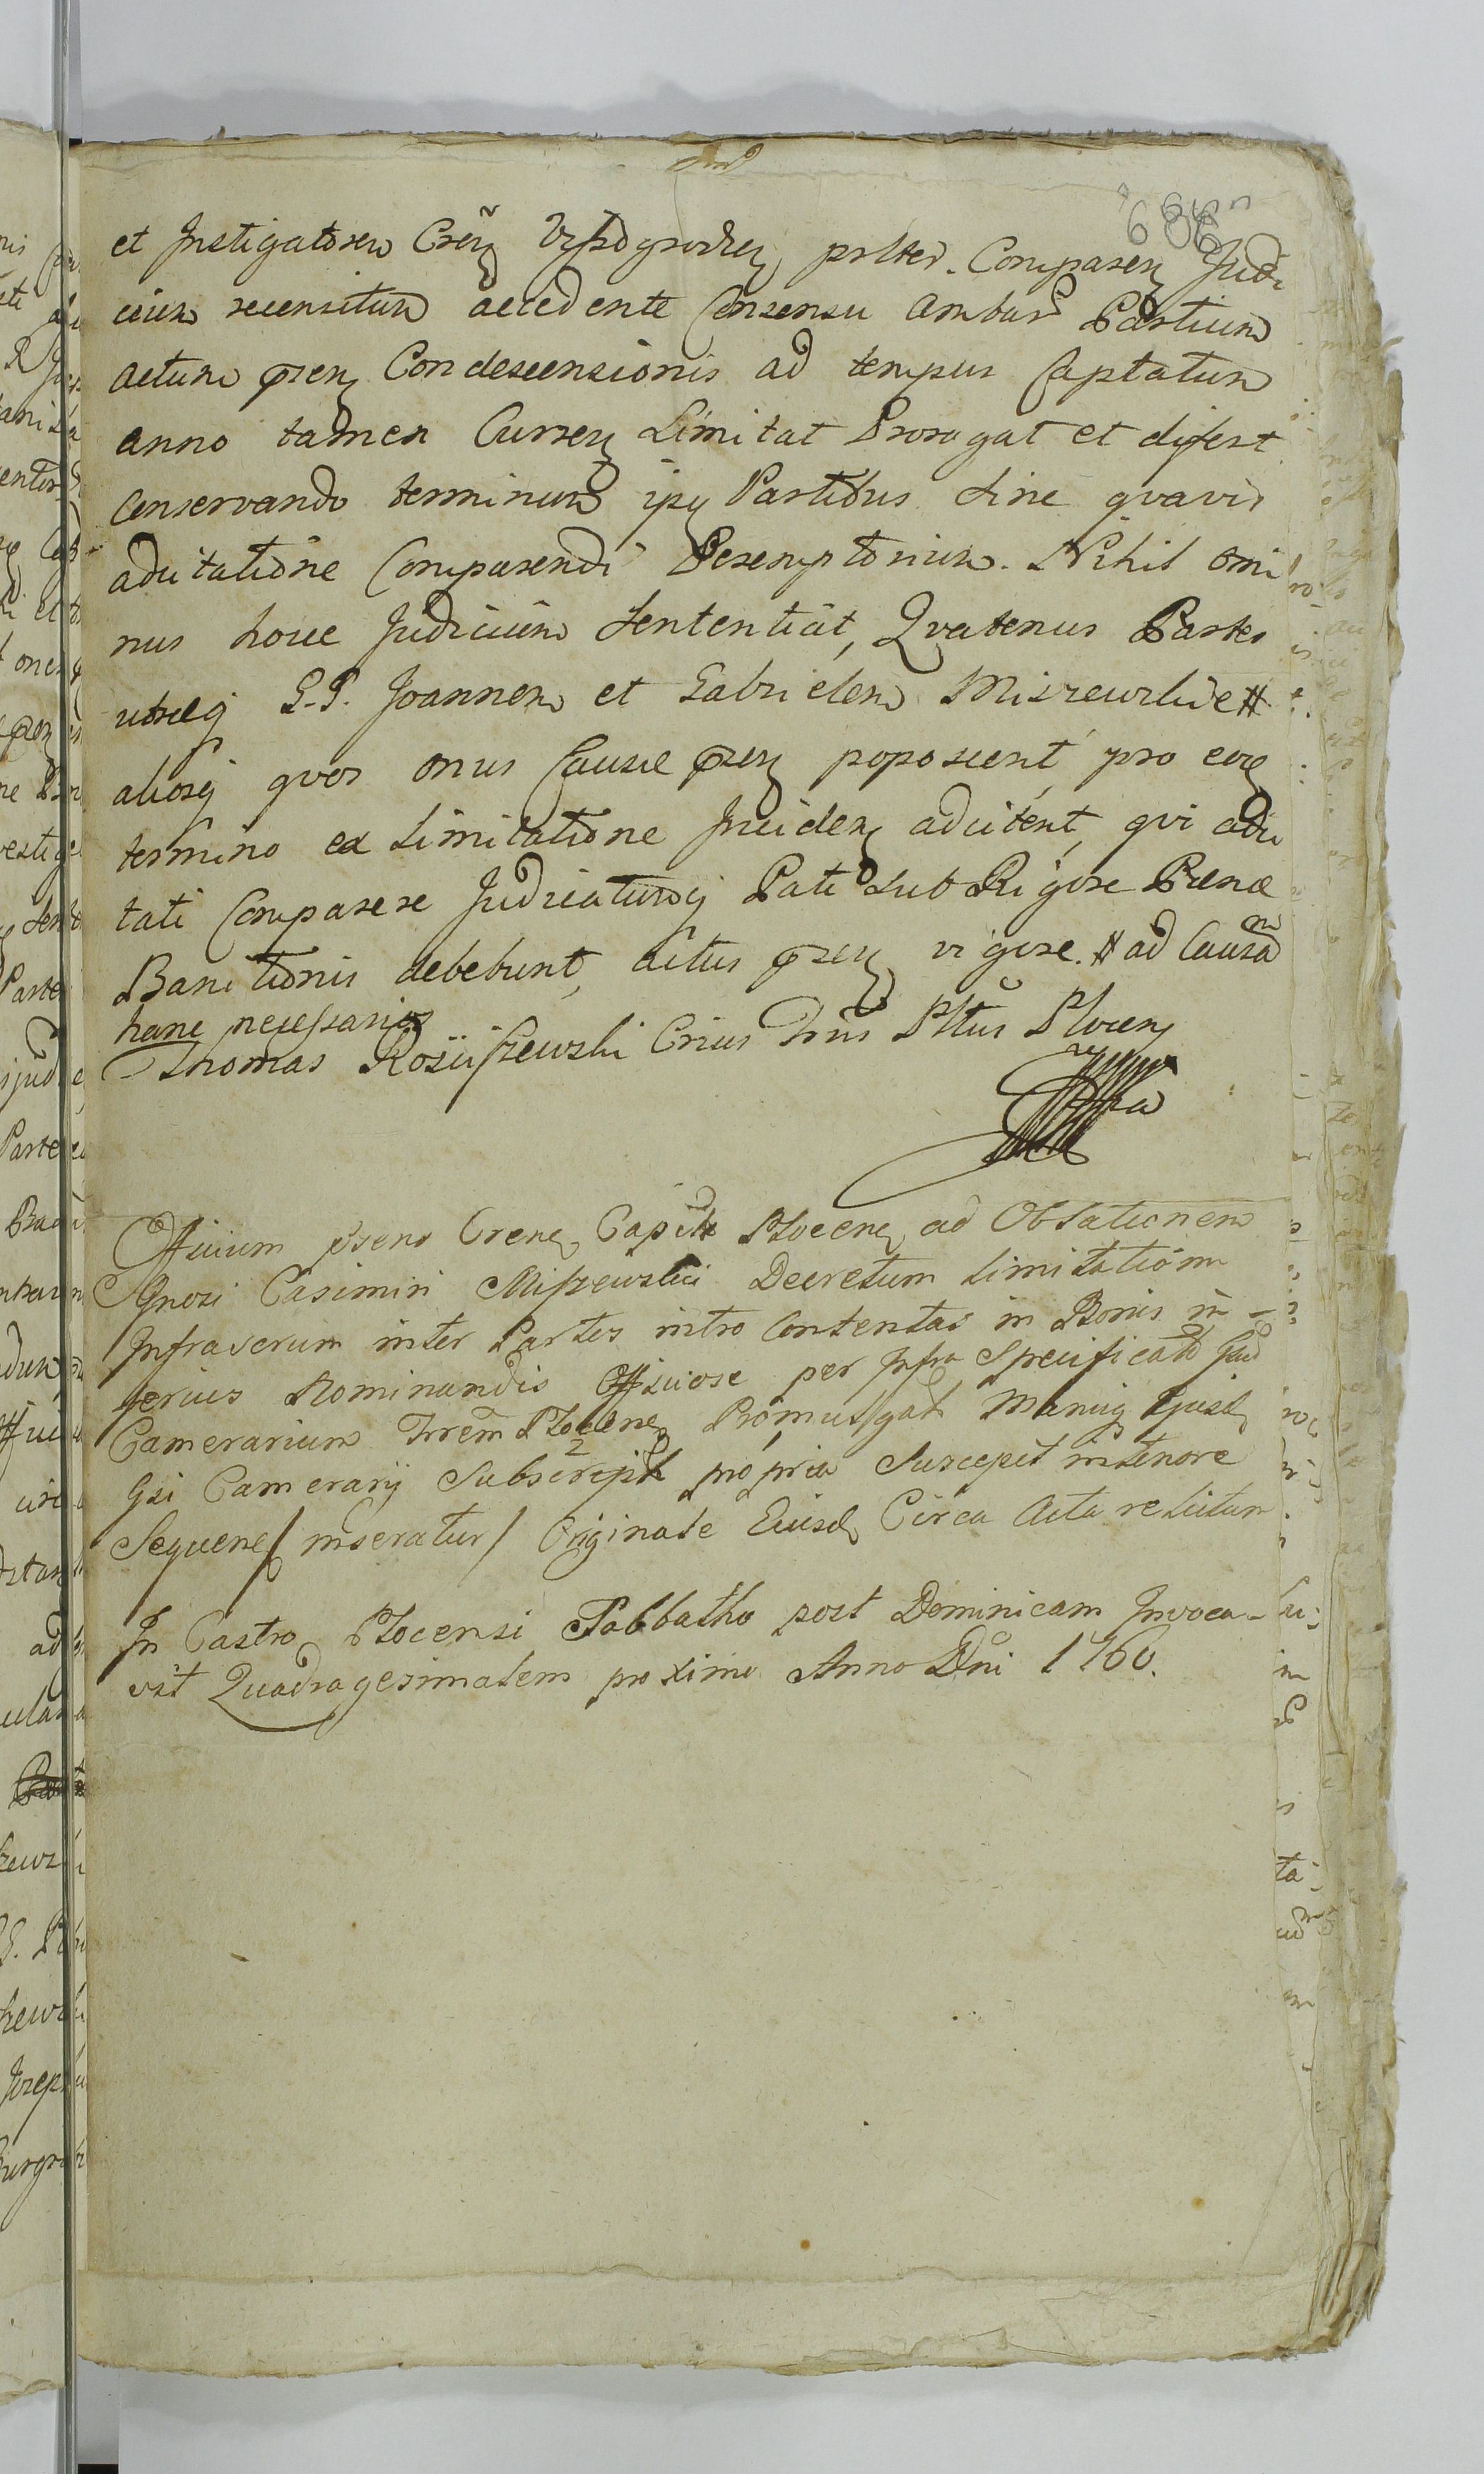 686
et Instigatorem Cren Vyszogroden prlter. Comparen Judi
cium recensitum accedente Consensu Ambar Partium
actum pren Condescensionis ad tempus Captatum
anno tamen Curren Limitat Prorogat et difert
Conservando terminum ipsis Partibus sine qvavis
adcitatione Comparendi Peremptorium. Nihil omi
nus hocce Judicium Sententiat, Qvatenus Partes
utraeq G.G. Joannem et Gabrielem Miszewskie #
aliosq qvos onus Causae pren poposcerit, pro eod
termino ex Limitatione Inciden adcitent, qvi adci
tati Comparere Judicaturoq Pati sub Rigore Paenae
Banitionis debebunt, actus pren vigore. # ad Causam
hanc necessarios
Thomas Rosciszewski Crius Trris Pltus Plocen
mpra
Officium praens Crene Capitle Plocene ad Oblationem
Gnosi Casimiri Miszewski Decretum Limitationis
Infrascrum inter Partes intro Contentas in Bonis in-
ferius Nominandis Officiose per Infra Specificatd Gsum
Camerarium Trrem Plocene Promulgat Manuq Ejusd
Gsi Camerarij Subscript propria Suscepit in tenore
Sequene / inseratur / Originale Eiusd Circa Acta relictum
In Castro Plocensi Sabbatho post Dominicam Invoca-
vit Quadragesimalem proximo Anno Dni 1760.